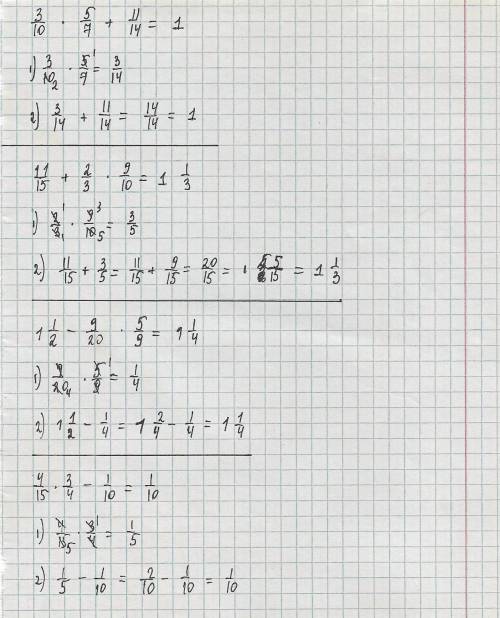 3/10 · 5/7 + 11/14 = 1
1) 3/10 2 · 5/7 1 = 3/14
2) 3/14 + 11/14 = 14/14 = 1
11/15 + 2/3 · 9/10 = 1 1/3
1) 2/3 1 1 · 9/10 3 5 = 3/5
2) 11/15 + 3/5 = 11/15 + 9/15 = 20/15 = 1 5/15 = 1 1/3
1 1/2 - 9/20 · 5/9 = 1 1/4
1) 9/20 4 · 5/9 1 = 1/4
2) 1 1/2 - 1/4 = 1 2/4 - 1/4 = 1 1/4
4/15 · 3/4 - 1/10 = 1/10
1) 4/15 5 · 3/4 1 = 1/5
2) 1/5 - 1/10 = 2/10 - 1/10 = 1/10